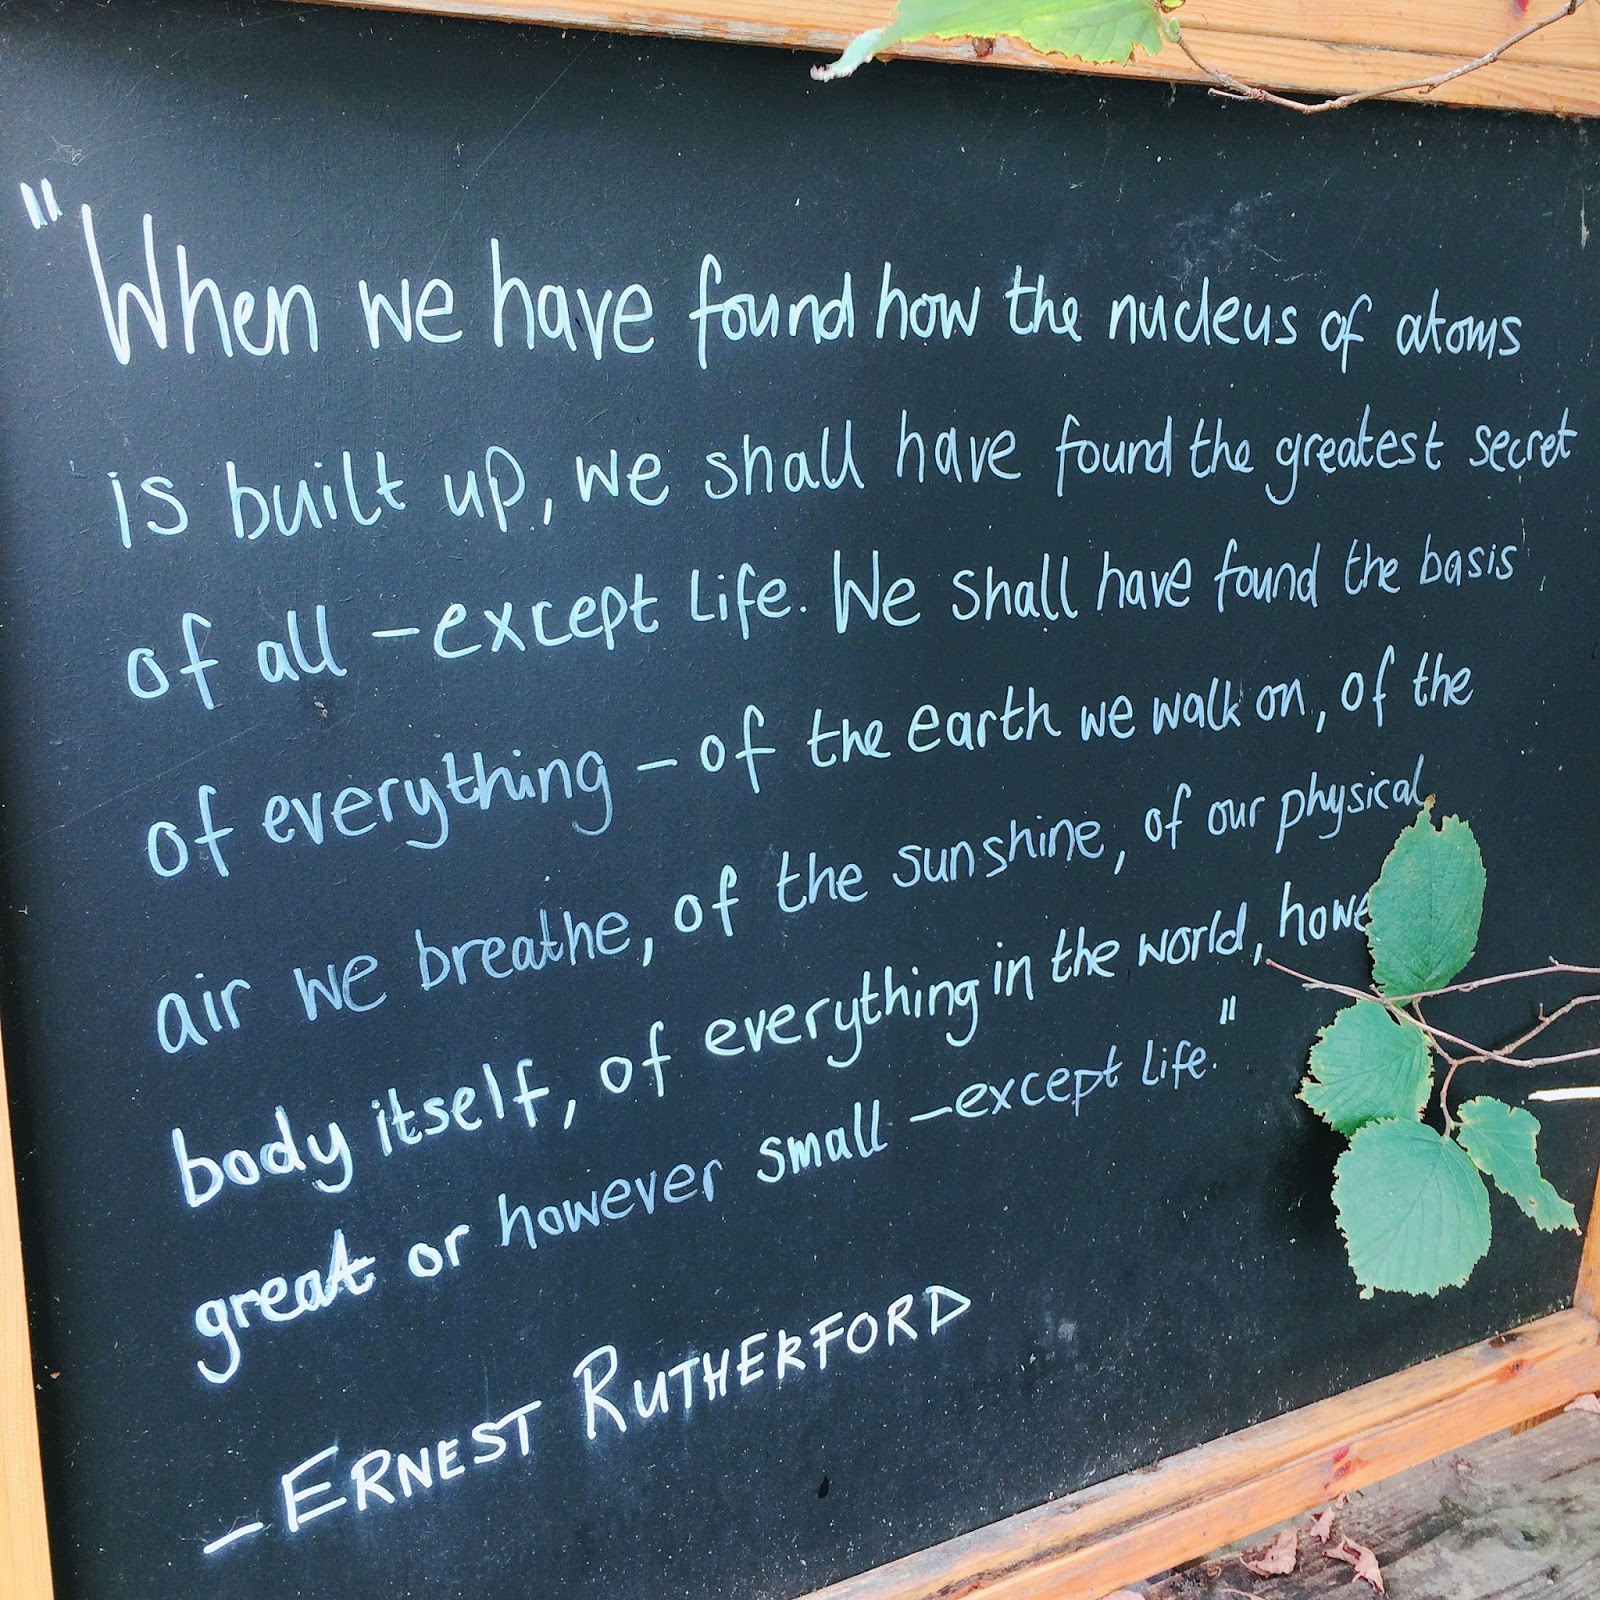 "When we have found how the nucleus of atoms
is built up, we shall have found the greatest secret
of all – except life. We shall have found the basis
of everything – of the earth we walk on, of the
air we breathe, of the sunshine, of our physical
body itself, of everything in the world,
great or however small – except life."
– ERNEST RUTHERFORD